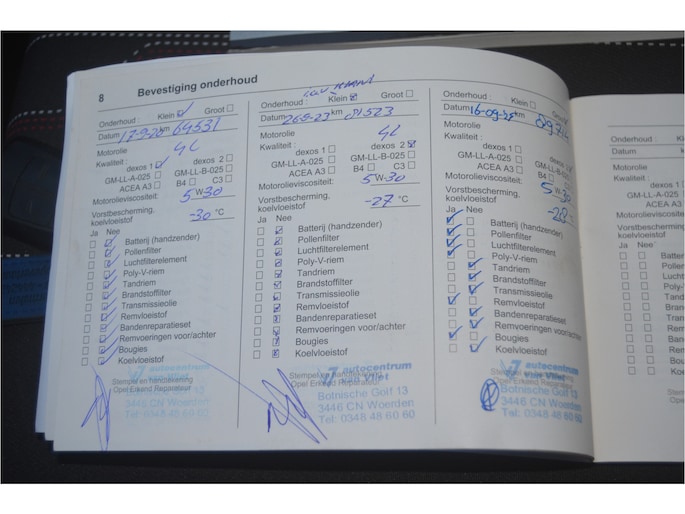 8
Bevestiging onderhoud
Onderhoud : Klein ☑ Groot ☐
Datum km 64531
Motorolie 4L
Kwaliteit :
dexos 1 ☑ dexos 2 ☐
GM-LL-A-025 ☐ GM-LL-B-025 ☐
ACEA A3 ☐ B4 ☐ C3 ☐
Motorolieviscositeit: 5 W 30
Vorstbescherming,
koelvloeistof -30 °C
Ja Nee
☐ ☑ Batterij (handzender)
☐ ☑ Pollenfilter
☐ ☑ Luchtfilterelement
☐ ☑ Poly-V-riem
☐ ☑ Tandriem
☐ ☑ Brandstoffilter
☐ ☑ Transmissieolie
☐ ☑ Remvloeistof
☐ ☑ Bandenreparatieset
☐ ☑ Remvoeringen voor/achter
☐ ☑ Bougies
☐ ☑ Koelvloeistof
Stempel en handtekening
Opel Erkend Reparateur
autocentrum
van Vliet
Botnische Golf 13
3446 CN Woerden
Tel: 0348 48 60 60
Onderhoud : Klein ☑ Groot ☐
Datum km 81523
Motorolie 4L
Kwaliteit :
dexos 1 ☐ dexos 2 ☑
GM-LL-A-025 ☐ GM-LL-B-025 ☐
ACEA A3 ☐ B4 ☐ C3 ☐
Motorolieviscositeit: 5 W-30
Vorstbescherming,
koelvloeistof -27 °C
Ja Nee
☐ ☑ Batterij (handzender)
☐ ☑ Pollenfilter
☐ ☑ Luchtfilterelement
☐ ☑ Poly-V-riem
☐ ☑ Tandriem
☐ ☑ Brandstoffilter
☐ ☑ Transmissieolie
☐ ☑ Remvloeistof
☐ ☑ Bandenreparatieset
☐ ☑ Remvoeringen voor/achter
☐ ☑ Bougies
☐ ☑ Koelvloeistof
Stempel en handtekening
Opel Erkend Reparateur
autocentrum
van Vliet
Botnische Golf 13
3446 CN Woerden
Tel: 0348 48 60 60
Onderhoud : Klein ☐ Groot
Datum km
Motorolie 4L
Kwaliteit :
dexos 1 ☐ dexos 2
GM-LL-A-025 ☐ GM-LL-B-025
ACEA A3 ☐ B4 ☐
Motorolieviscositeit: 5 W-30
Vorstbescherming,
koelvloeistof -28 °C
Ja Nee
☑ ☐ Batterij (handzender)
☑ ☐ Pollenfilter
☑ ☐ Luchtfilterelement
☐ ☑ Poly-V-riem
☐ ☑ Tandriem
☐ ☑ Brandstoffilter
☐ ☑ Transmissieolie
☑ ☐ Remvloeistof
☐ ☑ Bandenreparatieset
☑ ☑ Remvoeringen voor/achter
☑ ☐ Bougies
☐ ☑ Koelvloeistof
Stempel en handtekening
Opel Erkend Reparateur
autocentrum
van Vliet
Botnische Golf 13
3446 CN Woerden
Tel: 0348 48 60 60
Onderhoud : K
Datum
Motorolie
Kwaliteit :
dexos 1 ☐
GM-LL-A-025 ☐
ACEA A3 ☐
Motorolieviscositeit
Vorstbescherming
koelvloeistof
Ja Nee
☐ ☐ Batter
☐ ☐ Poller
☐ ☐ Lucht
☐ ☐ Poly-
☐ ☐ Tand
☐ ☐ Bran
☐ ☐ Tran
☐ ☐ Rem
☐ ☐ Ban
☐ ☐ Rem
☐ ☐ Bou
☐ ☐ Koe